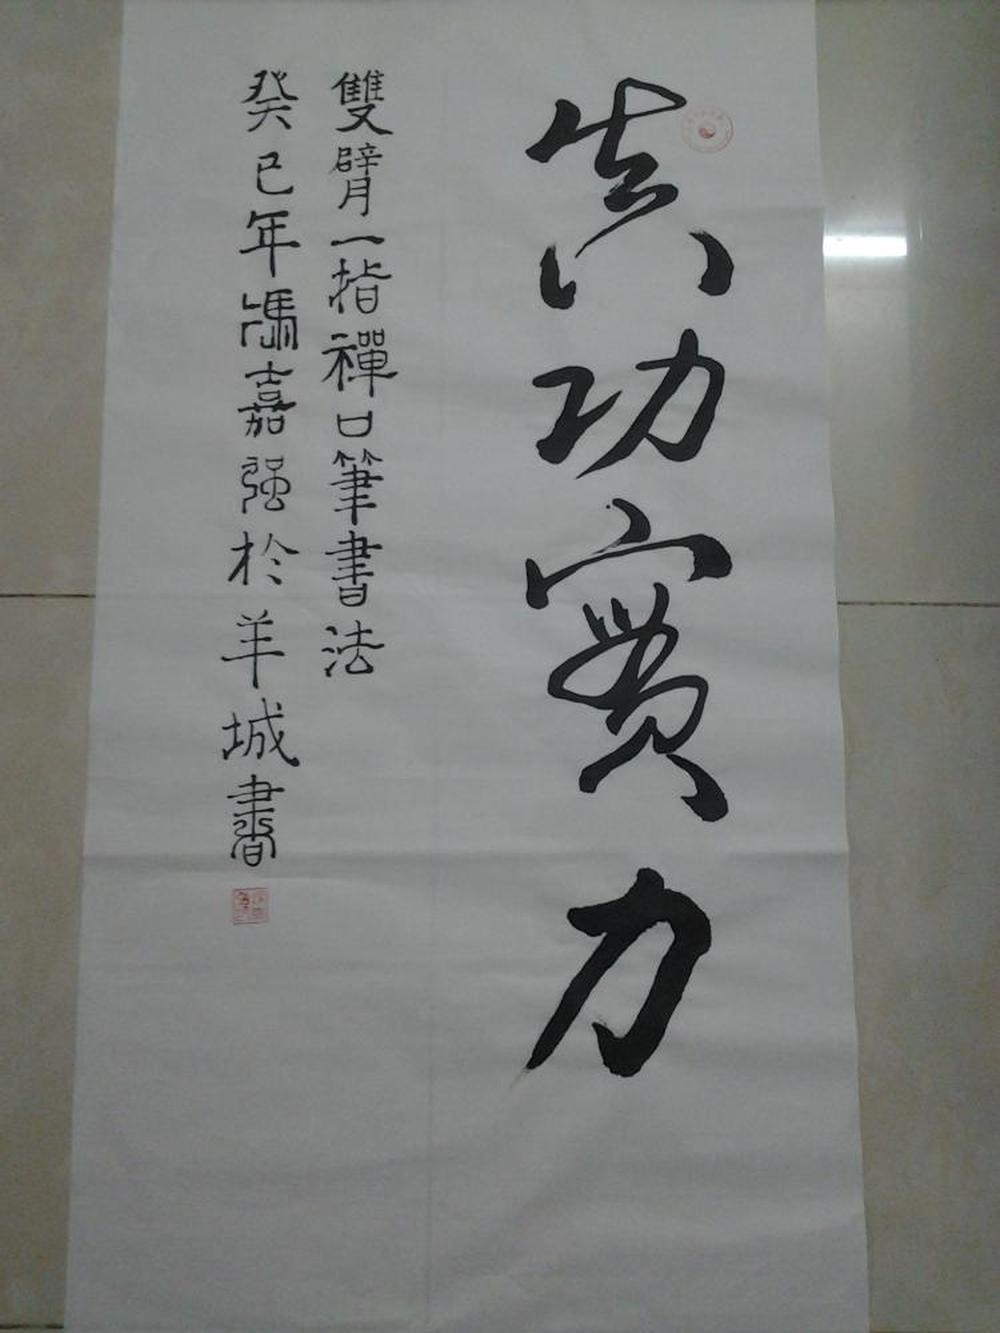 真功實力
雙臂一指禪口筆書法
癸巳年馮嘉强於羊城書